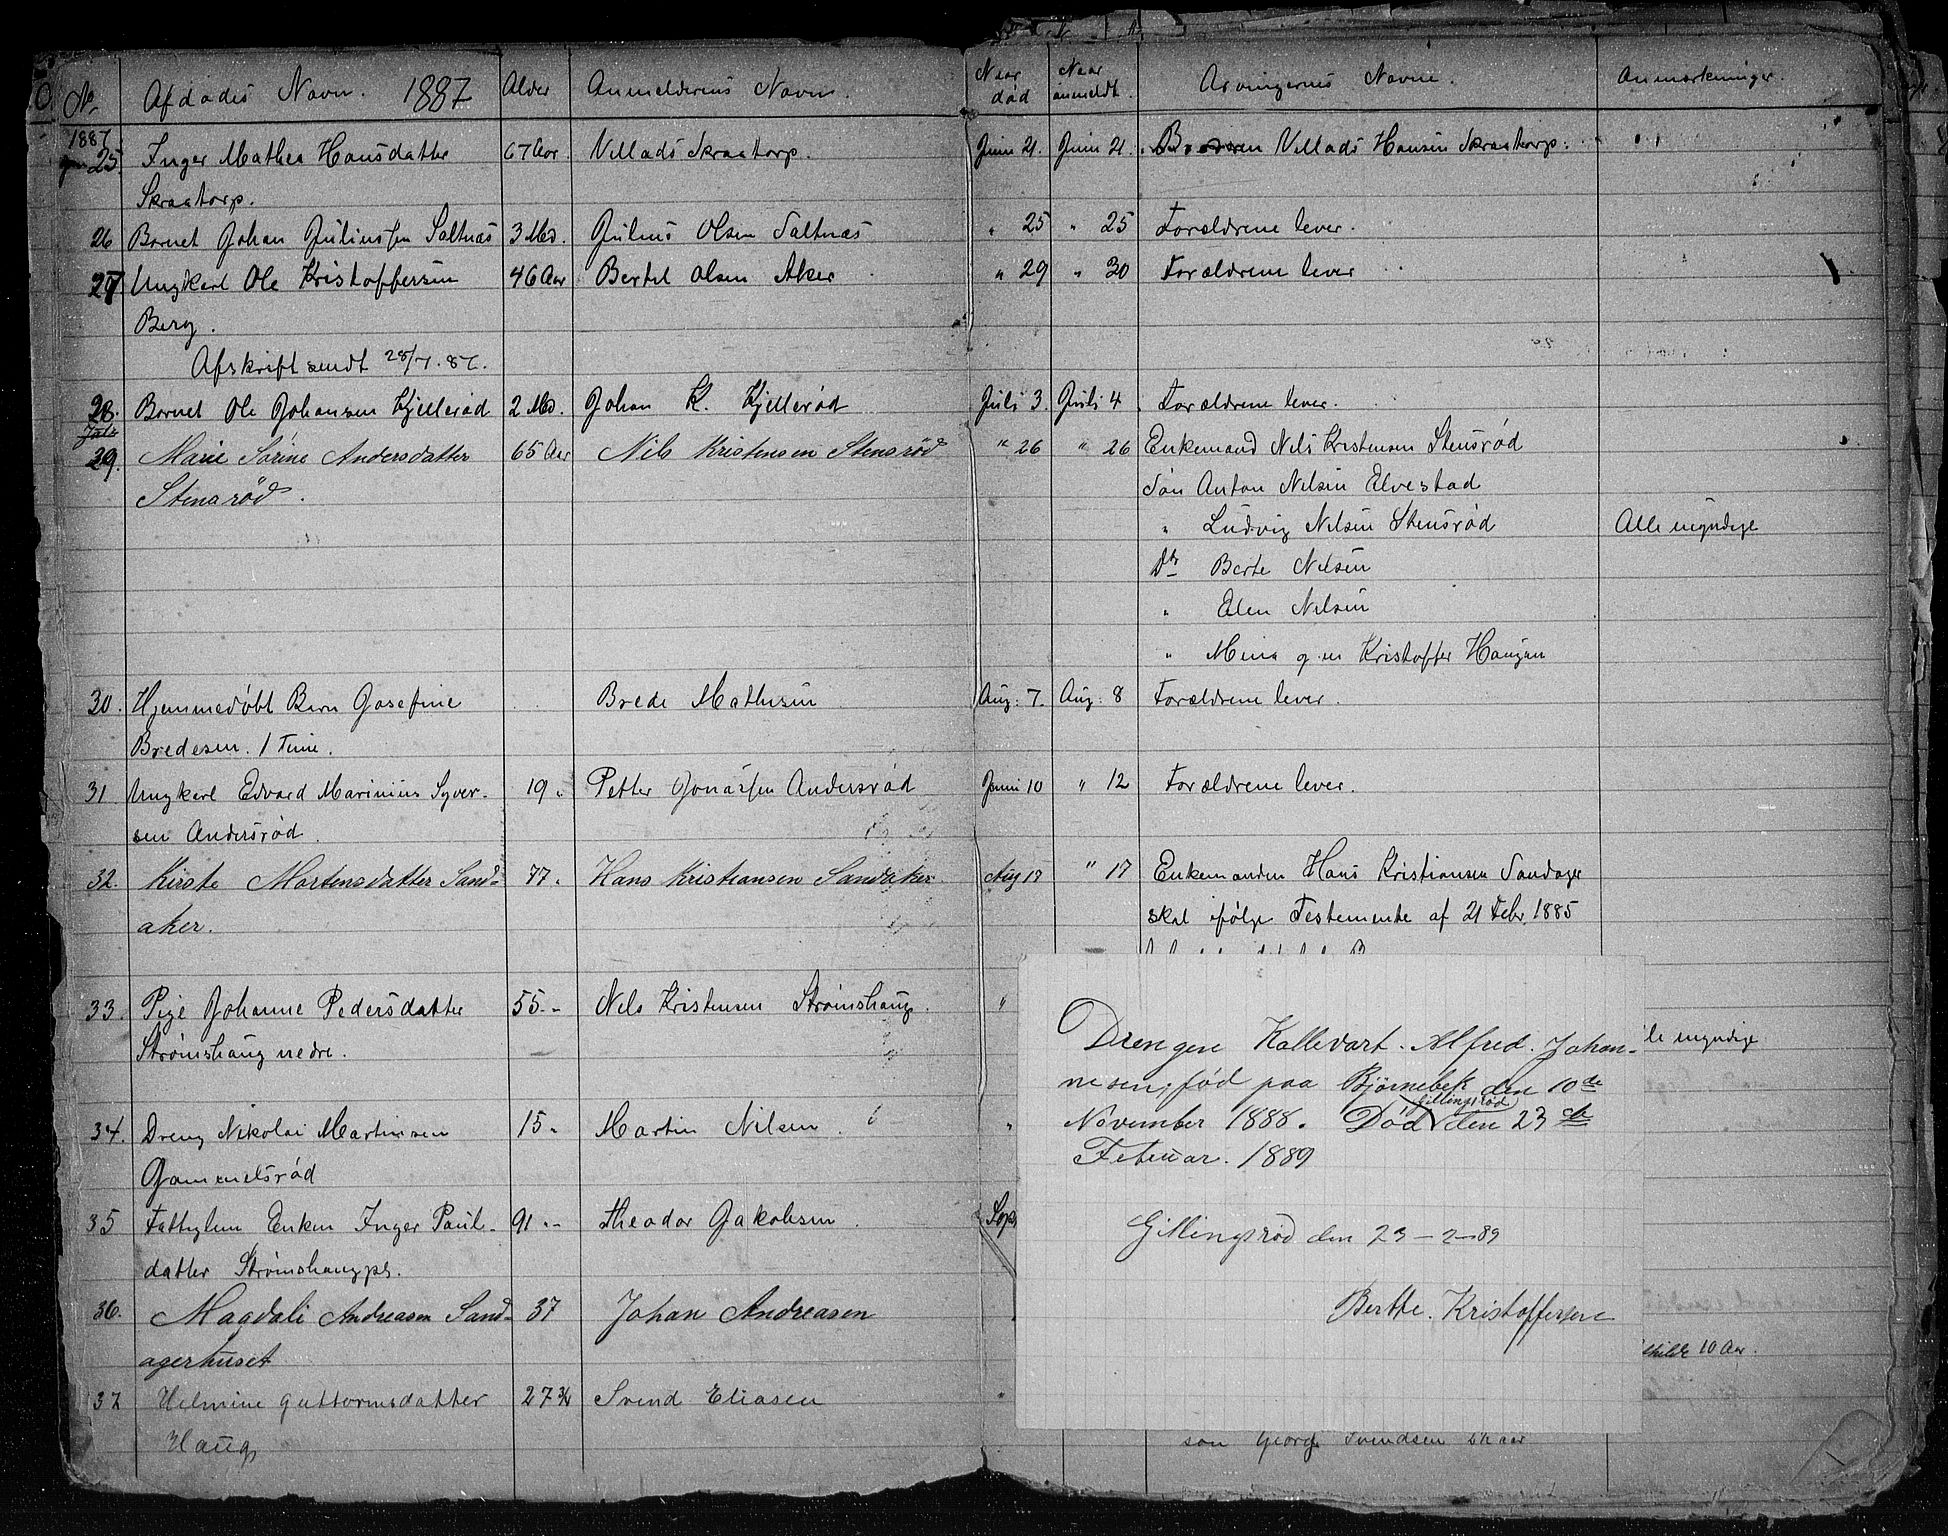 No. Afdødes Navn. 1887 Alder Anmelderens Navn. Naar død Naar anmeldt. Arvingernes Navne. Anmærkninger.
1887
25. Inger Mathea Hansdatter 67 Aar. Villads Skraatorp. Juni 21. Juni 21. Broderen Villads Hansen Skraatorp.
Skraatorp.
26 Barnet Johan Juliussen Saltnæs 3 Md. Julius Olsen Saltnæs " 25 " 25 Forældrene lever.
27 Ungkarl Ole Kristoffersen 46 Aar Bertel Olsen Aker " 29 " 30 Forældrene lever
Berg.
Afskrift sendt 28/7. 87.
28. Barnet Ole Johansen Kjellerød 2 Md. Johan K. Kjellerød Juli 3. Juli 4. Forældrene lever.
Juli
29. Marie Sørine Andersdatter 65 Aar Nils Kristensen Stensrød " 26 " 26 Enkemand Nels Kristensen Stensrød
Stensrød. Søn Anton Nilsen Elvestad
" Ludvig Nilsen Stensrød Alle myndige
Dtr Berte Nilsen
" Elen Nilsen
" Mina g. m Kristoffer Haugen
30. Hjemmedøbt Barn Josefine Brede Mathisen Aug: 7. Aug: 8 Forældrene lever.
Bredesen. 1 Time.
31. Ungkarl Edvard Marinius Syver- 19 " Petter Jonassen Andersrød Juni 10 " 12 Forældrene lever.
sen Andersrød.
32. Kirste Mortensdatter Sand- 77 " Hans Kristiansen Sandaker Aug 17 " 17 Enkemanden Hans Kristiansen Sandager
aker. skal ifølge Testemente af 21 Febr. 1885
33. Pige Johanne Pedersdatter 55 - " Nels Kristensen Strømshaug. "
Strømshaug nedre. le myndige
34. Dreng Nikolai Martinsen 15 " Martin Nilsen "
Gammelsrød
35 Fattiglem Enken Inger Paul- 91 " - Theodor Jakobsen. Sep
datter Strømshaugps.
36. Magdali Andreasen Sand- 37 Johan Andreasen
agerhuset thilde 10 Aar.
37 Helmine Guttormsdatter 27 3/4 Svend Eliasen "
Haug,
søn Georg Svendsen
Drengen Kallevart. Alfred. Johan-
nesen, fød paa Bjørnebek den 10de
Gillingsrød
November 1888. Død den 23de
Februar. 1889
Gillingsrød den 23-2-89
Berthe. Kristoffersen